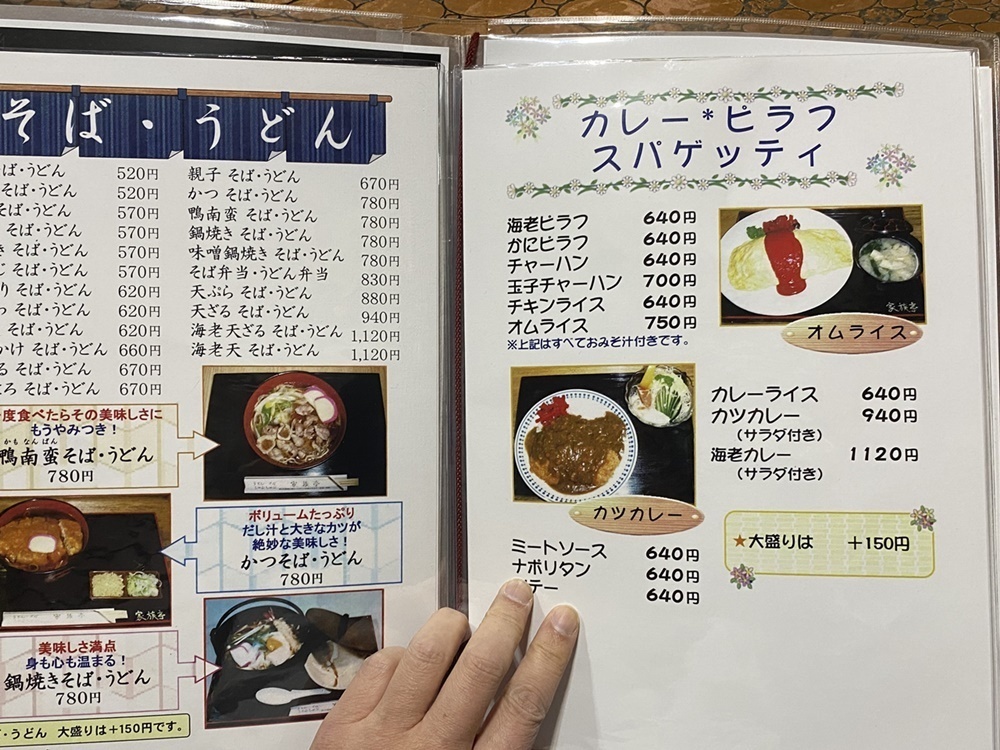 そば・うどん
ば・うどん 520円
そば・うどん 520円
そば・うどん 570円
そば・うどん 570円
き そば・うどん 570円
じ そば・うどん 570円
り そば・うどん 620円
そば・うどん 620円
そば・うどん 620円
かけ そば・うどん 660円
る そば・うどん 670円
ろ そば・うどん 670円
親子 そば・うどん 670円
かつ そば・うどん 780円
鴨南蛮 そば・うどん 780円
鍋焼き そば・うどん 780円
味噌鍋焼き そば・うどん 780円
そば弁当・うどん弁当 830円
天ぷら そば・うどん 880円
天ざる そば・うどん 940円
海老天ざる そば・うどん 1,120円
海老天 そば・うどん 1,120円
度食べたらその美味しさに
もうやみつき！
かもなんばん
鴨南蛮そば・うどん
780円
ボリュームたっぷり
だし汁と大きなカツが
絶妙な美味しさ！
かつそば・うどん
780円
家族亭
美味しさ満点
身も心も温まる！
鍋焼きそば・うどん
780円
・うどん 大盛りは+150円です。
カレー*ピラフ
スパゲッティ
海老ピラフ 640円
かにピラフ 640円
チャーハン 640円
玉子チャーハン 700円
チキンライス 640円
オムライス 750円
※上記はすべておみそ汁付きです。
家族亭
オムライス
カレーライス 640円
カツカレー 940円
(サラダ付き)
海老カレー 1120円
(サラダ付き)
カツカレー
★大盛りは +150円
ミートソース 640円
ナポリタン 640円
テー 640円